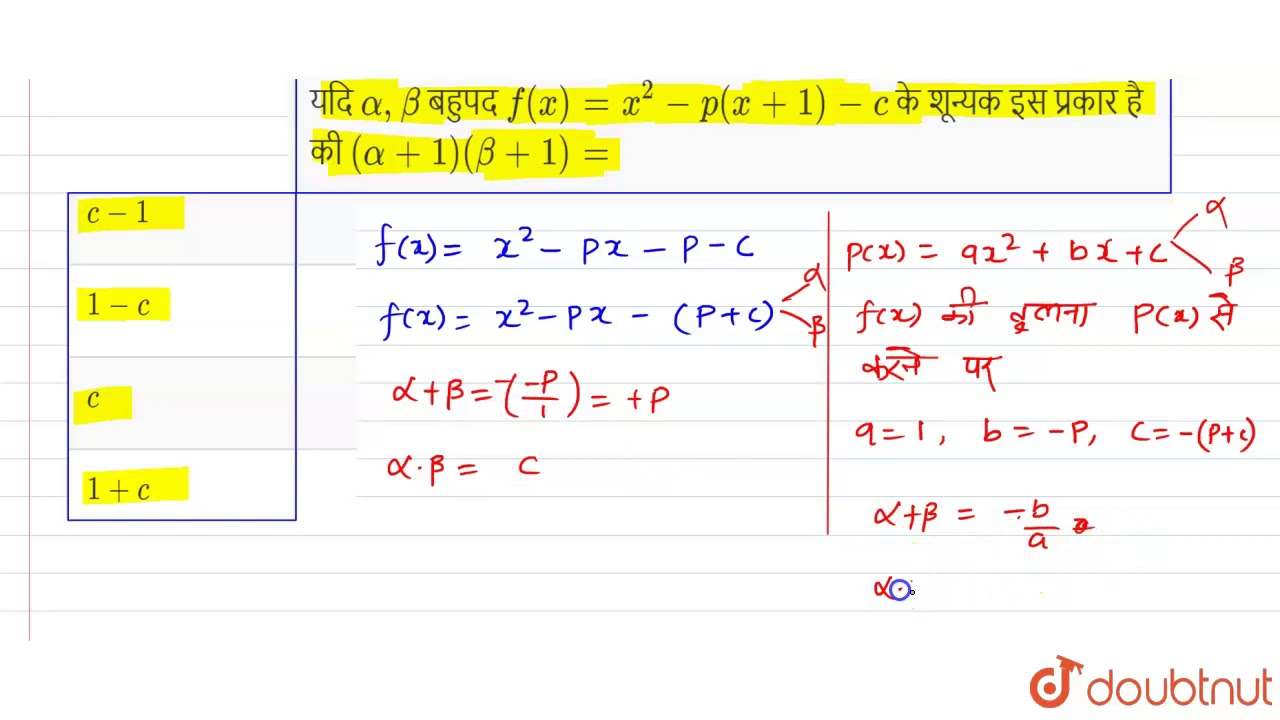 यदि α, β बहुपद f(x) = x² − p(x + 1) − c के शून्यक इस प्रकार है
की (α + 1)(β + 1) =
c − 1
1 − c
c
1 + c
f(x) = x² − px − p − c
f(x) = x² − px − (p + c) α β
α + β = −(−p/1) = +p
α · β = c
p(x) = ax² + bx + c α β
f(x) की तुलना p(x) से
करने पर
a = 1, b = −p, c = −(p+c)
α + β = −b/a
α ·
doubtnut